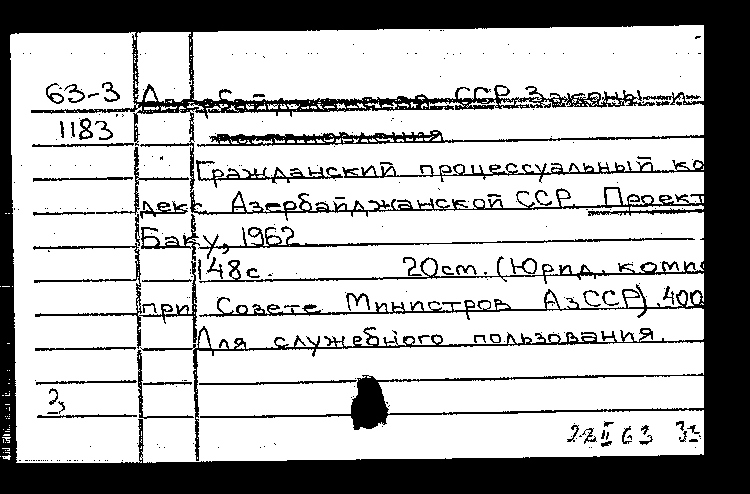 63-3 Азербайджанская ССР Законы и
1183 постановления
Гражданский процессуальный ко
декс Азербайджанской ССР. Проект
Баку, 1962
148с. 20см. (Юрид. комис
при Совете Министров АзССР). 400
Для служебного пользования.
22 II 63 33